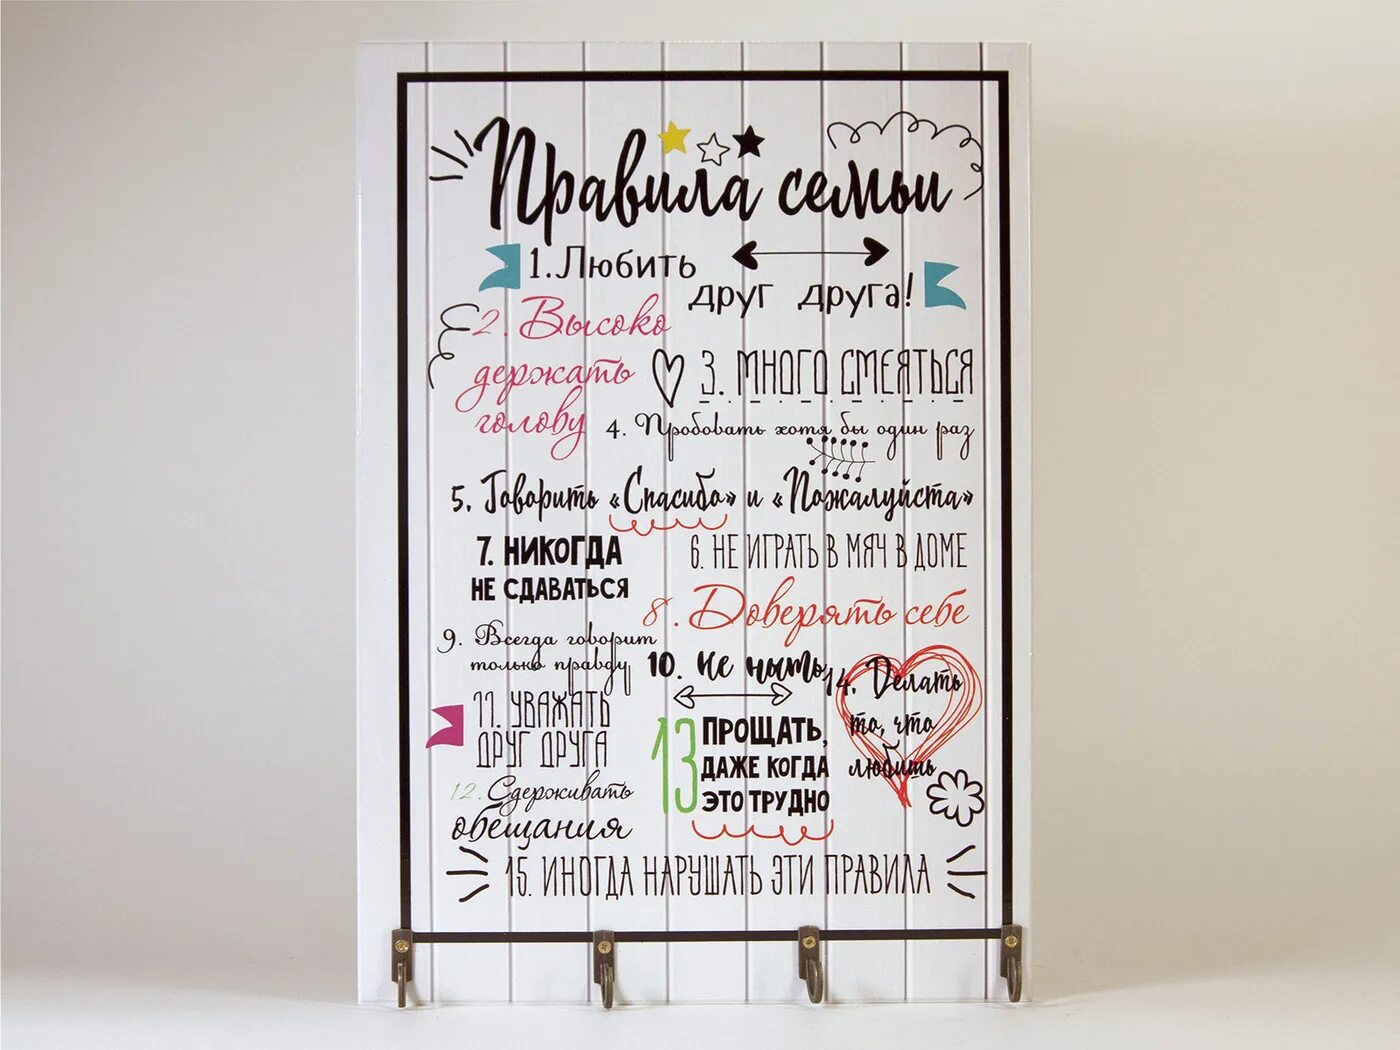 Правила семьи
1. Любить
друг друга!
2. Высоко
держать
голову
3. МНОГО СМЕЯТЬСЯ
4. Пробовать хотя бы один раз
5. Говорить «Спасибо» и «Пожалуйста»
6. НЕ ИГРАТЬ В МЯЧ В ДОМЕ
7. НИКОГДА
НЕ СДАВАТЬСЯ
8. Доверять себе
9. Всегда говорит
только правду
10. Не ныть
11. УВАЖАТЬ
ДРУГ ДРУГА
12. Сдерживать
обещания
13 ПРОЩАТЬ,
ДАЖЕ КОГДА
ЭТО ТРУДНО
14. Делать
то, что
любить
15. ИНОГДА НАРУШАТЬ ЭТИ ПРАВИЛА